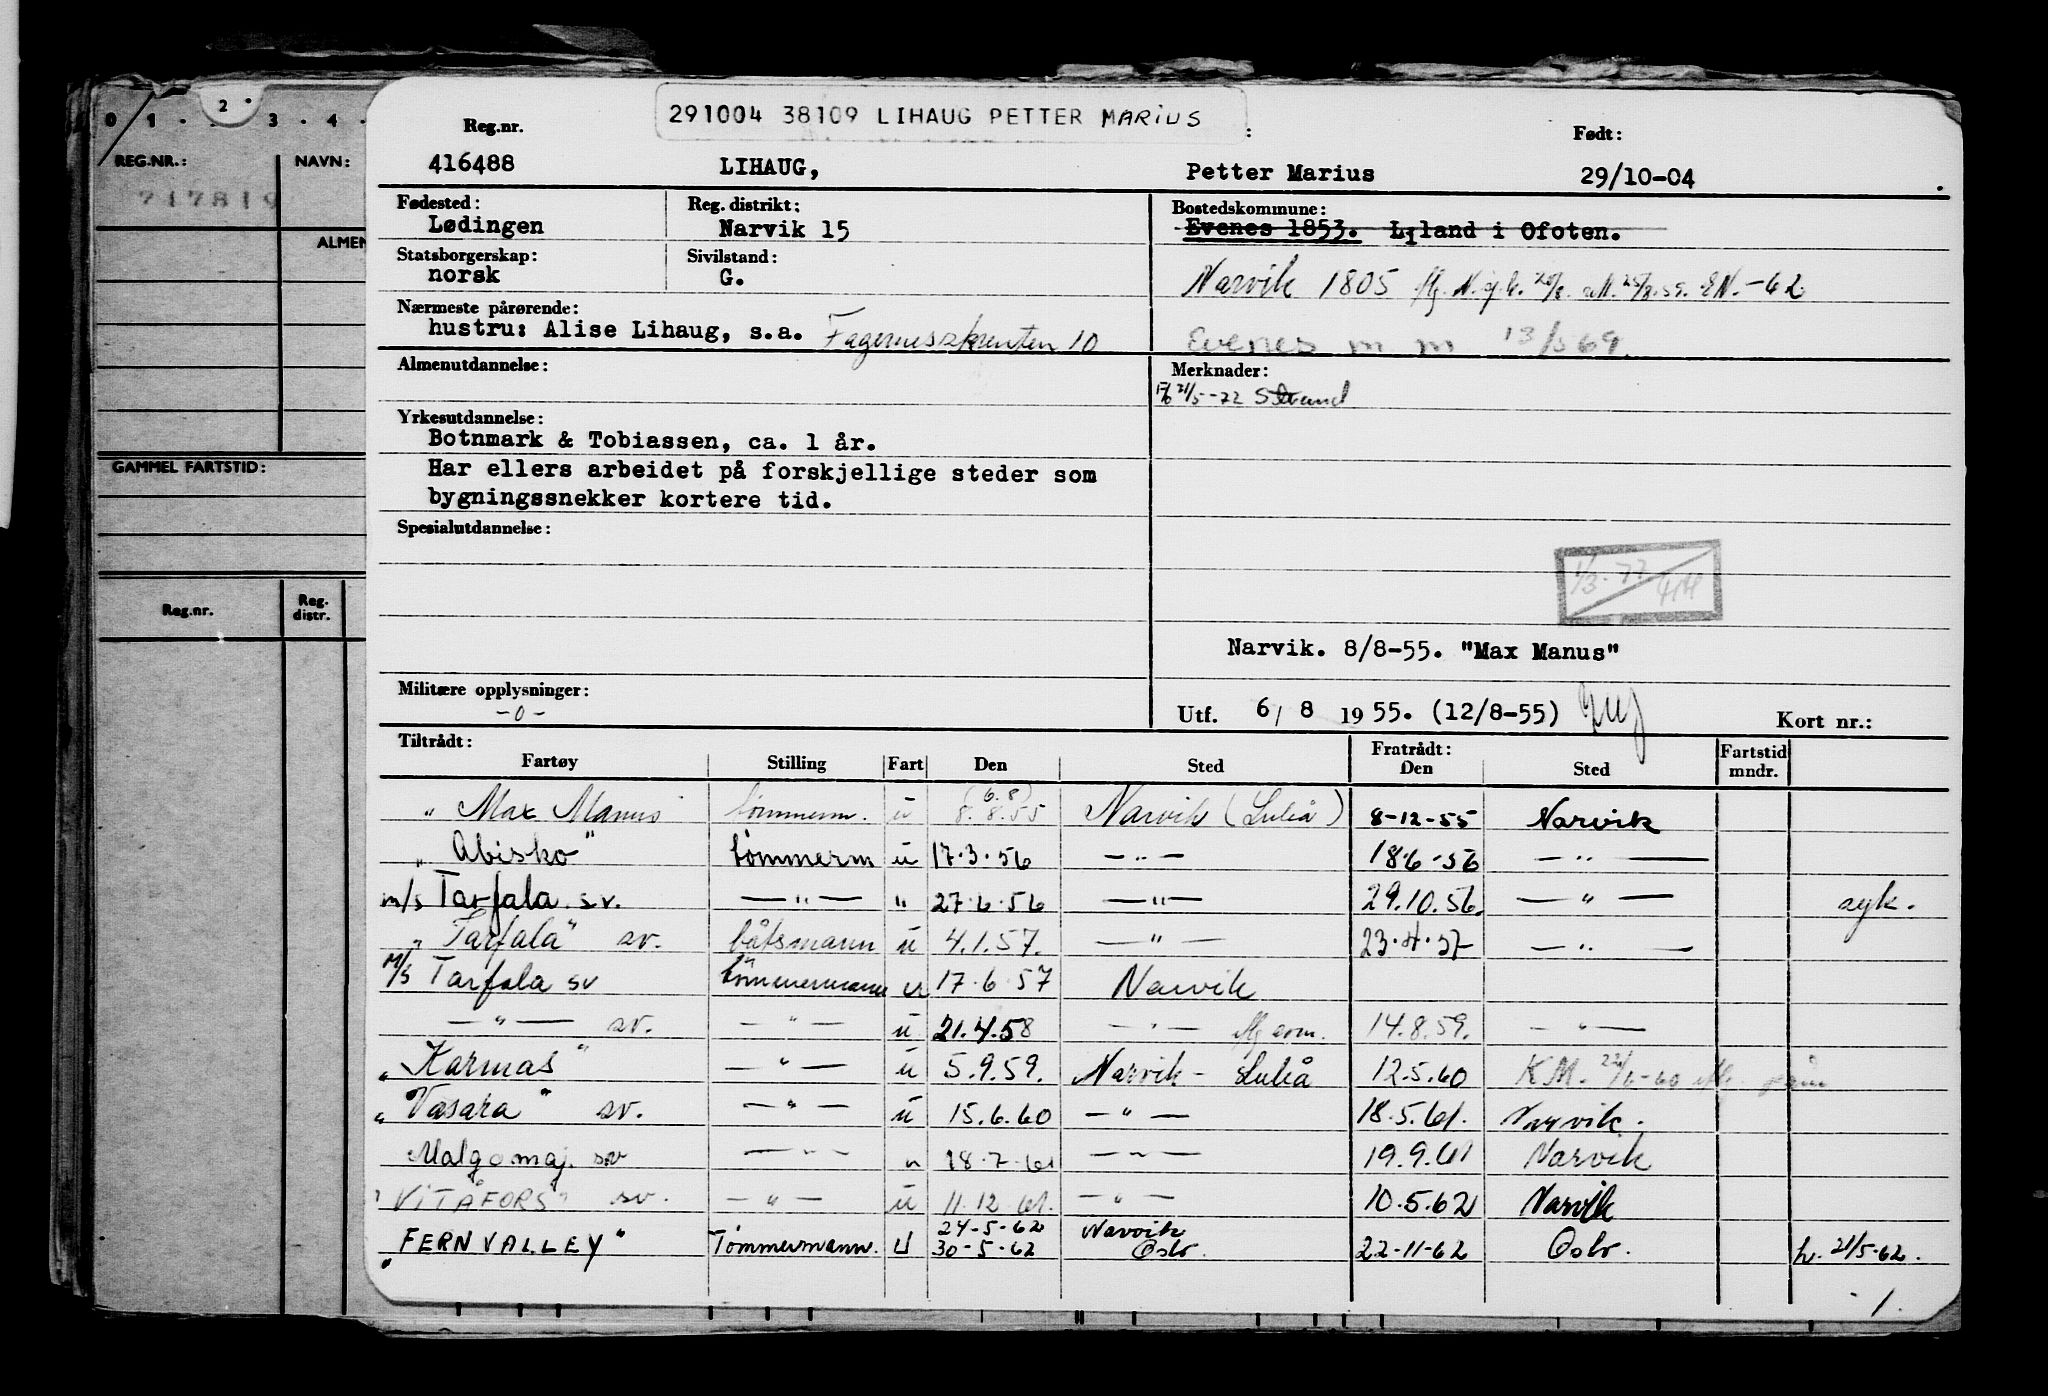 291004 38109 LIHAUG PETTER MARIUS
0 1 . 2 . 3 . 4 .
REG.NR.: NAVN:
717819
ALMEN
GAMMEL FARTSTID:
Reg.nr. Reg. distr.
Reg.nr. : Født:
416488 LIHAUG, Petter Marius 29/10-04
Fødested: Reg. distrikt: Bostedskommune:
Lødingen Narvik 15 Evenes 1853. Liland i Ofoten.
Statsborgerskap: Sivilstand:
norsk G. Narvik 1805 -62
Nærmeste pårørende:
hustru: Alise Lihaug, s.a. Fagernesskrenten 10 Evenes m m 13/5 69.
Almenutdannelse: Merknader:
21/5-72 Strand
Yrkesutdannelse:
Botnmark & Tobiassen, ca. 1 år.
Har ellers arbeidet på forskjellige steder som
bygningssnekker kortere tid.
Spesialutdannelse:
1/3-77
414
Narvik. 8/8-55. "Max Manus"
Militære opplysninger:
-0-
Utf. 6/ 8 1955. (12/8-55) Kort nr.:
Tiltrådt: Fratrådt: Fartstid
Fartøy Stilling Fart Den Sted Den Sted mndr.
" Max Manus tømmerm. u (6.8) 8.8.55 Narvik (Luleå) 8-12-55 Narvik
" Abisko" tømmerm u 17.3.56 — " — 18.6.56 — " —
m/s Tarfala sv. — " — " 27.6.56 — " — 29.10.56. — " — syk.
" Tarfala" sv. båtsmann u 4.1.57. — " — 23.4.57 — " —
M/s Tarfala sv tømmermann u 17.6.57 Narvik
— " — sv. — " — u 21.4.58 — " — 14.8.59. — " —
" Karmas" — " — u 5.9.59. Narvik - Luleå 12.5.60 K.M. 22/6-60
" Vasara" sv. — " — u 15.6.60 — " — 18.5.61. Narvik.
Malgomaj. sv — " — " 18.7.61 — " — 19.9.61 Narvik
" VITÅFORS" sv. — " — u 11.12.61. — " — 10.5.62 Narvik
" FERNVALLEY" Tømmermann. U 24-5-62 30-5-62 Narvik Oslo. 22-11-62 Oslo. h. 21/5-62.
1.